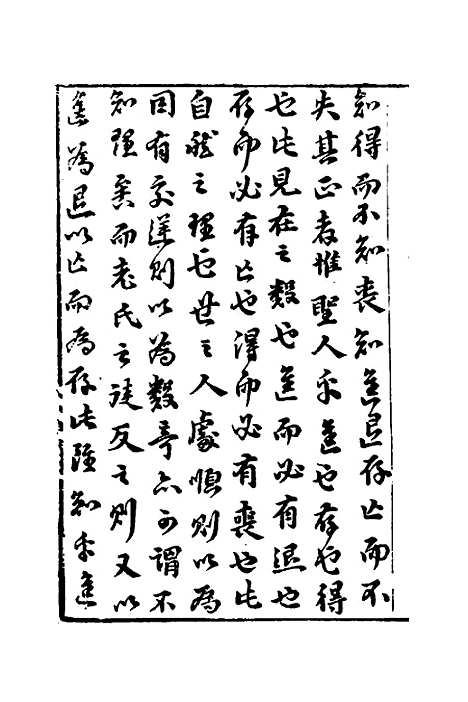 知得而不知喪知進退存亡而不
失其正者惟聖人乎進也存也得
也此見在之數也進而必有退也
存而必有亡也得而必有喪也此
自然之理也世之人處順則以爲
固有交逆則以為數奇亦可謂不
知理矣而老氏之徒反之則又以
進為退以亡而為存此雖知乎進